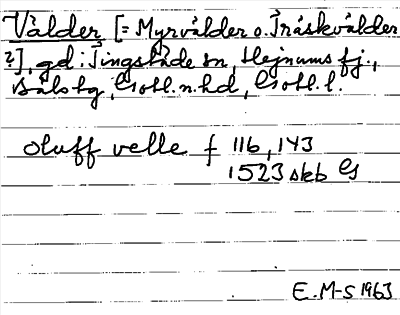 Vålder [= Myrvälder o. Träskvälder
?], gd: Tingstäde sn, Hejnums fj.,
Bäls hg, Gotl. n. hd, Gotl. l.
oluff velle f 116, 143
1523 skb Gs
E. M-S 1963